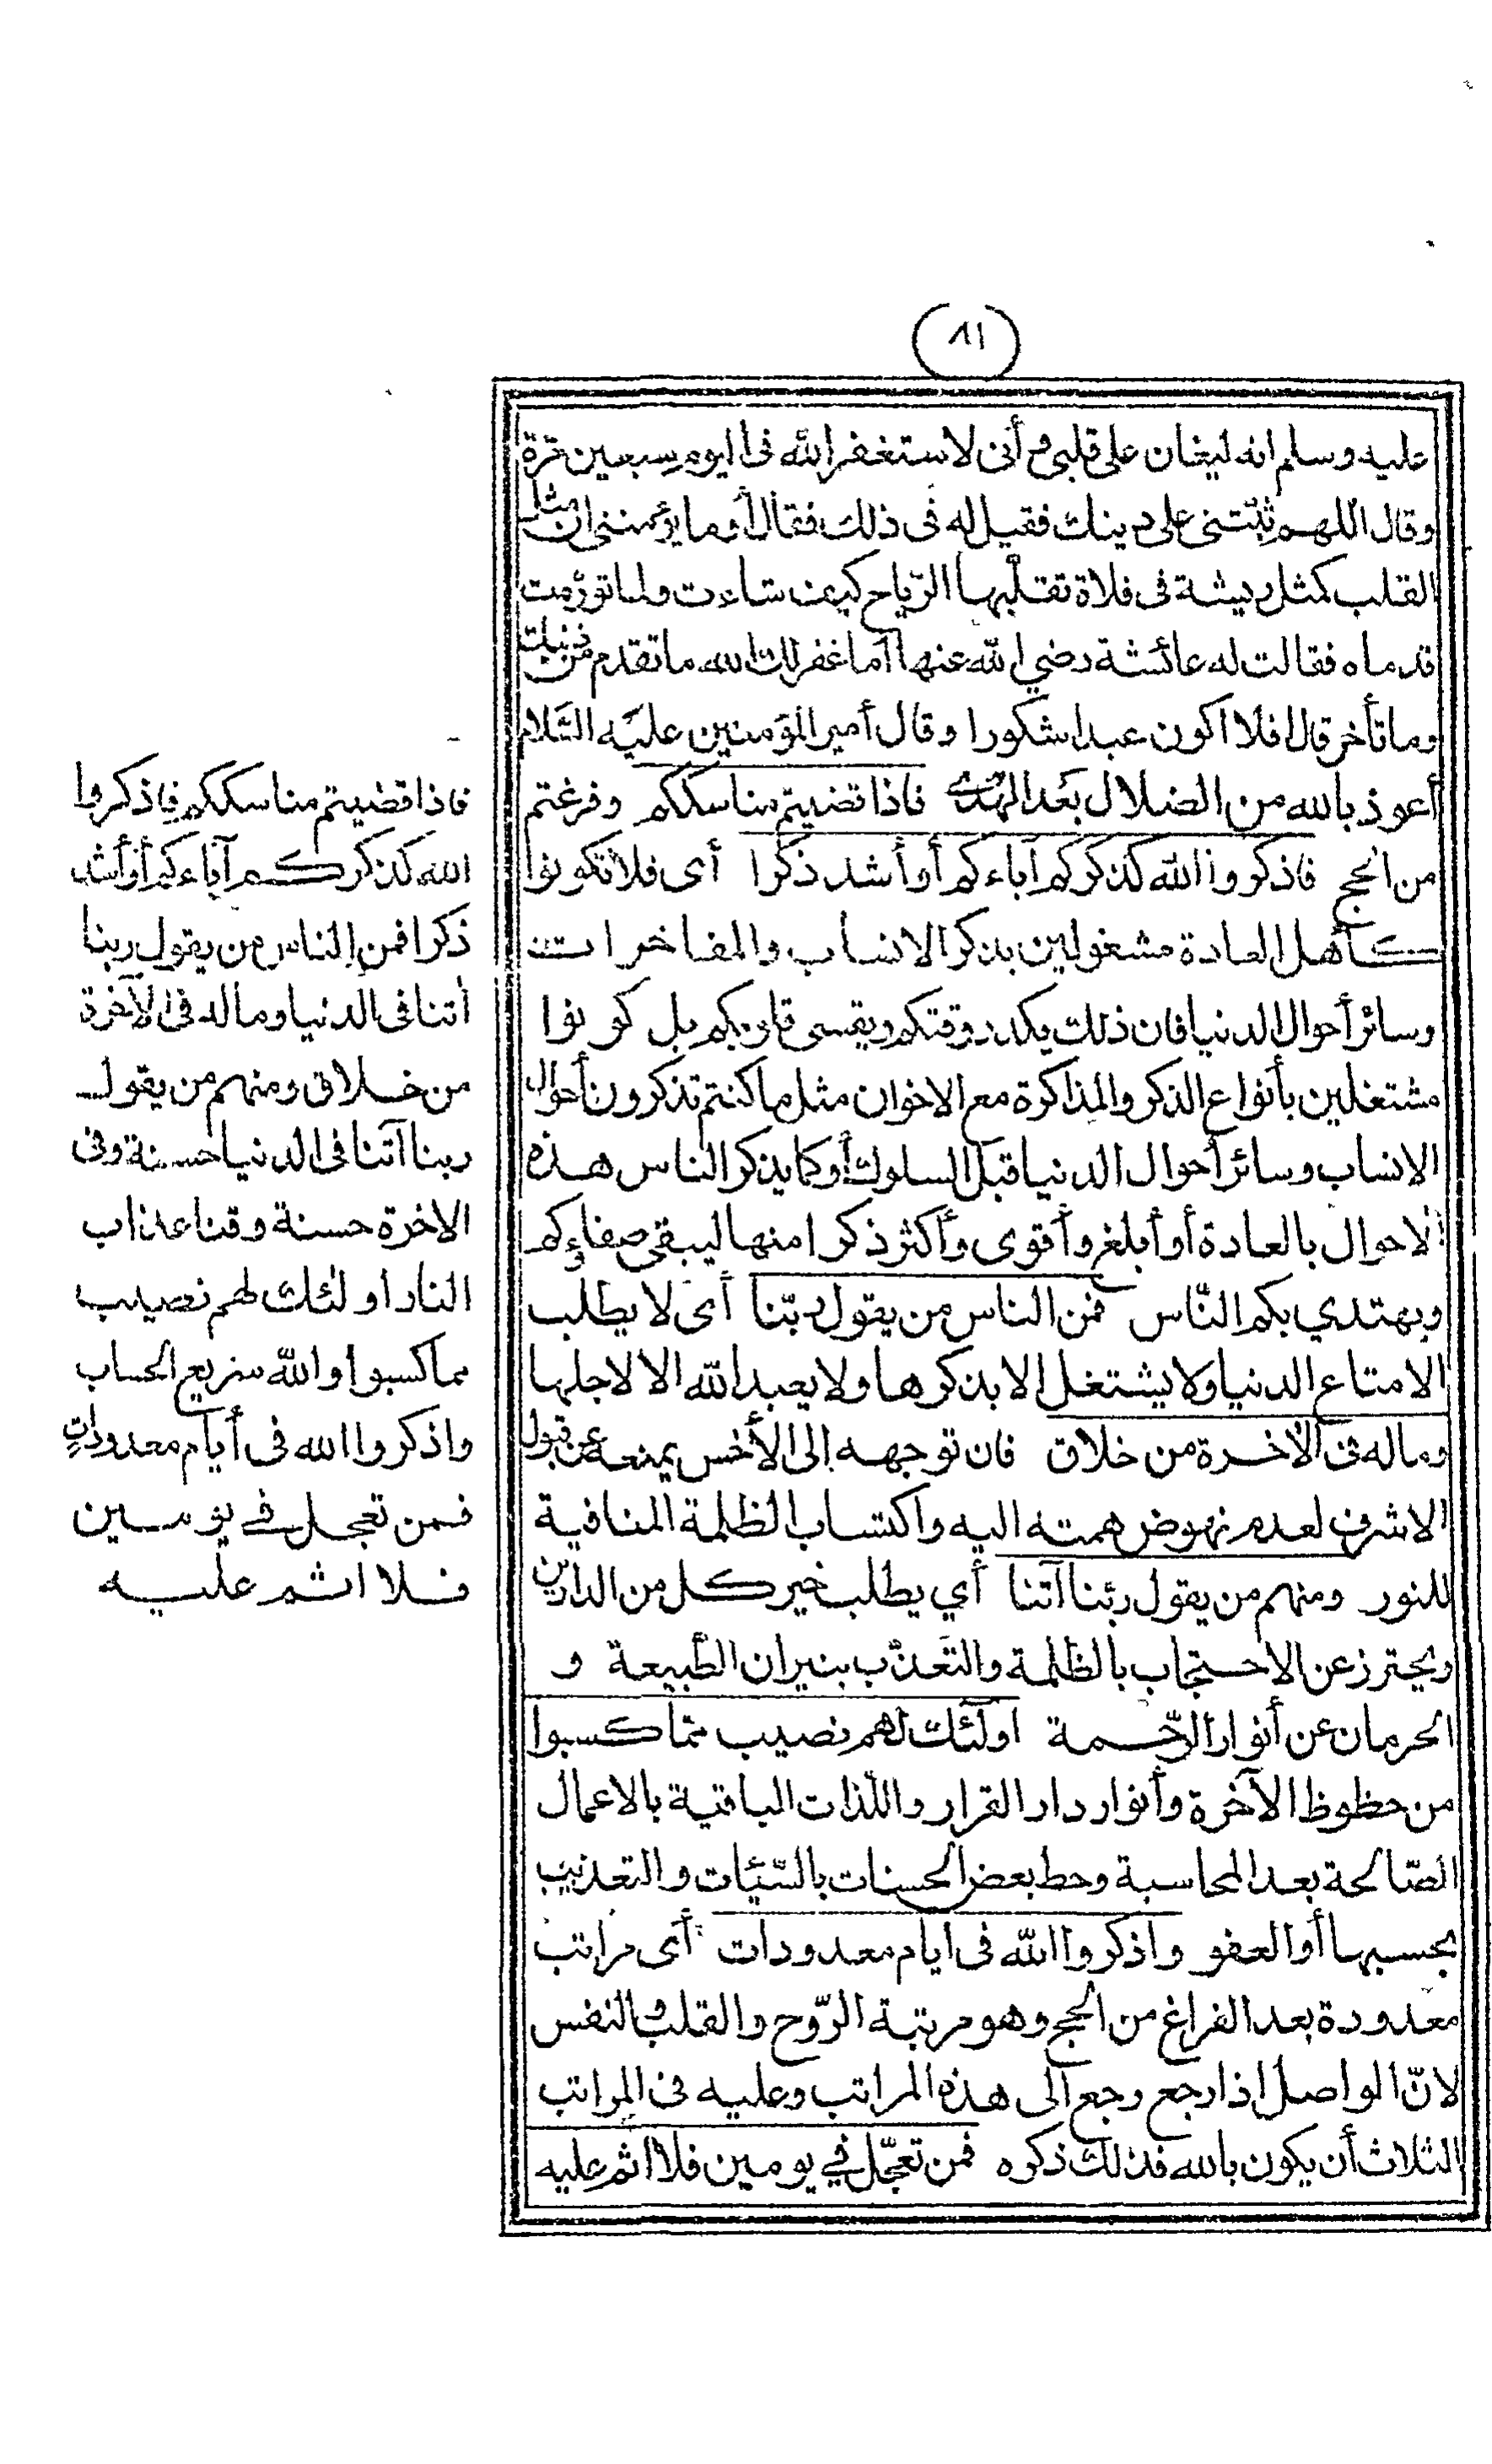 ٨١
عليه وسلم انه ليغان على قلبى وأنى لاستغفر الله فى اليوم سبعين مرة
وقال اللهم ثبّتنى على دينك فقيل له فى ذلك فقال أوما يؤمننى ان مثل
القلب كمثل ريشة فى فلاة تقلّبها الرّياح كيف شاءت ولما تورّمت
قدماه فقالت له عائشة رضي الله عنها أما غفر لك الله ما تقدم من ذنبك
وما تأخر قال افلا اكون عبدا شكورا وقال أمير المؤمنين عليه السّلام
أعوذ بالله من الضلال بعد الهدى فاذا قضيتم مناسككم وفرغتم
من الحج فاذكروا الله كذكركم آباءكم أو أشد ذكرا أى فلا تكونوا
كأهل العادة مشغولين بذكر الانساب والمفاخرات
وسائر أحوال الدنيا فان ذلك يكدر وقتكم ويقسى قلوبكم بل كونوا
مشتغلين بأنواع الذكر والمذاكرة مع الاخوان مثل ما كنتم تذكرون أحوال
الانساب وسائر أحوال الدنيا قبل السلوك أو كما يذكر الناس هذه
الاحوال بالعادة أو أبلغ وأقوى وأكثر ذكرا منها ليبقى صفاءكم
ويهتدي بكم النّاس فمن الناس من يقول ربّنا أى لا يطلب
الامتاع الدنيا ولا يشتغل الا بذكرها ولا يعبد الله الا لاجلها
وماله فى الآخرة من خلاق فان توجهه إلى الأخس يمنعه عن قبول
الاشرف لعدم نهوض همته اليه واكتساب الظلمة المنافية
للنور ومنهم من يقول ربّنا آتنا أي يطلب خير كل من الدارين
ويحترز عن الاحتجاب بالظلمة والتعذّب بنيران الطّبيعة و
الحرمان عن أنوار الرّحمة اولئك لهم نصيب ممّا كسبوا
من حظوظ الآخرة وأنوار دار القرار واللّذات الباقية بالاعمال
الصّالحة بعد المحاسبة وحط بعض الحسنات بالسّيّئات والتعذيب
بحسبها أو العفو واذكروا الله فى ايام معدودات أى مراتب
معدودة بعد الفراغ من الحج وهو مرتبة الرّوح والقلب والنفس
لانّ الواصل اذا رجع رجع الى هذه المراتب وعليه فى المراتب
الثلاث أن يكون بالله فذلك ذكره فمن تعجّل في يومين فلا اثم عليه
فاذا قضيتم مناسككم فاذكروا
الله كذكركم آباءكم أو أشد
ذكرا فمن الناس من يقول ربنا
آتنا فى الدنيا وماله فى الآخرة
من خلاق ومنهم من يقول
ربنا آتنا فى الدنيا حسنة وفى
الاخرة حسنة وقنا عذاب
النار اولئك لهم نصيب
مما كسبوا والله سريع الحساب
واذكروا الله فى أيام معدودات
فمن تعجل في يومين
فلا اثم عليه